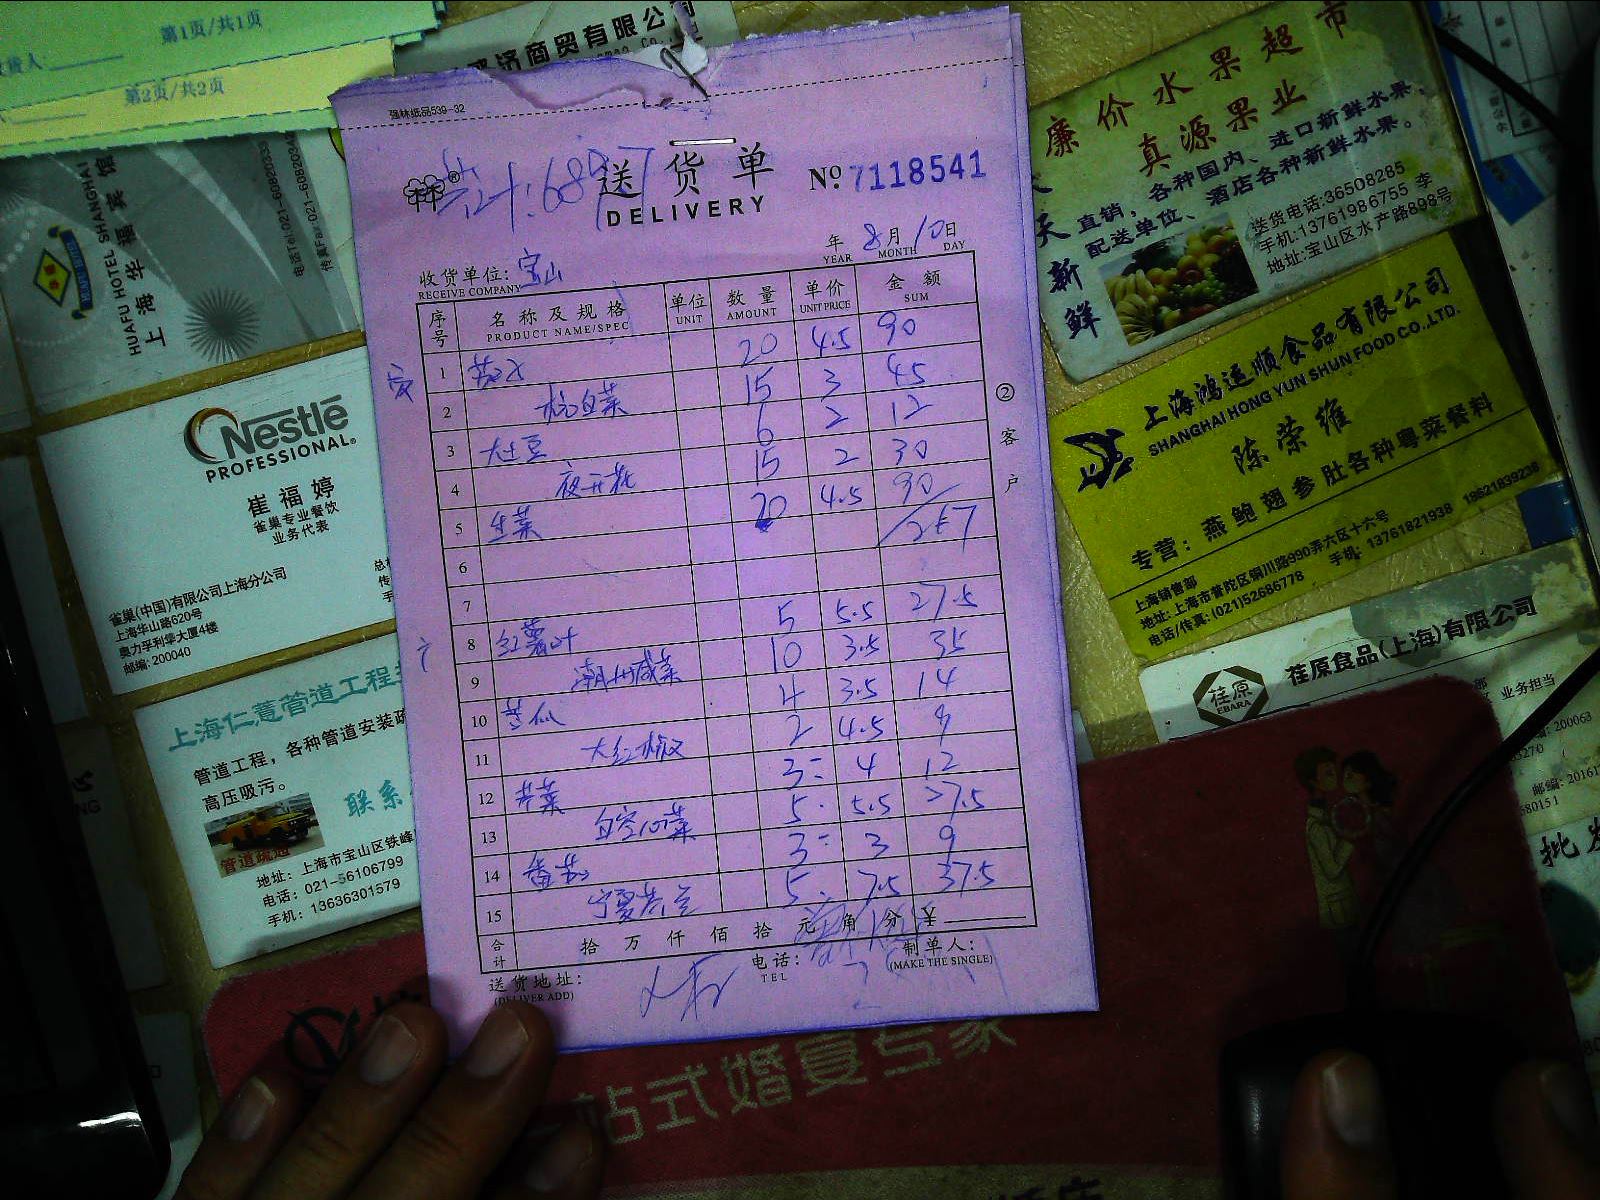 第1页/共1页
第2页/共2页
强林纸品539-32
送货单
DELIVERY
No 7118541
8月10日
年
YEAR MONTH DAY
收货单位: 宝山
RECEIVE COMPANY
序号 名称及规格 单位 数量 单价 金额
PRODUCT NAME/SPEC UNIT AMOUNT UNIT PRICE SUM
1 20 4.5 90
2 杭白菜 15 3 45
3 大土豆 6 2 12
4 夜开花 15 2 30
5 生菜 20 4.5 90
6 267
7
8 红薯叶 5 5.5 27.5
9 潮州咸菜 10 3.5 35
10 苦瓜 4 3.5 14
11 大红椒 2 4.5 9
12 芹菜 3 4 12
13 白空心菜 5 5.5 27.5
14 番茄 3 3 9
15 宁夏 5 7.5 37.5
合计 拾 万 仟 佰 拾 元 角 分 ¥
送货地址:
(DELIVER ADD)
电话:
TEL
制单人:
(MAKE THE SINGLE)
②客户
商贸有限公司
HUAFU HOTEL SHANGHAI
上海华福宾馆
Nestlé
PROFESSIONAL
崔福婷
雀巢专业餐饮
业务代表
雀巢(中国)有限公司上海分公司
上海华山路620号
奥力孚利华大厦4楼
邮编: 200040
上海仁薏管道工程
管道工程,各种管道安装
高压吸污。
联系
管道疏通
地址: 上海市宝山区铁峰
电话: 021-56106799
手机: 13636301579
廉价水果超市
真源果业
天天新鲜
直销,各种国内、进口新鲜水果。
配送单位、酒店各种新鲜水果。
送货电话:36508285
手机:13761986755 李
地址:宝山区水产路898号
上海鸿运顺食品有限公司
SHANGHAI HONG YUN SHUN FOOD CO.,LTD.
陈荣维
专营: 燕鲍翅参肚各种粤菜餐料
上海销售部
地址: 上海市普陀区铜川路990弄六区十六号
电话/传真: (021)52686778
手机: 13761821938 18621839238
荏原
EBARA
荏原食品(上海)有限公司
业务担当
站式婚宴专家